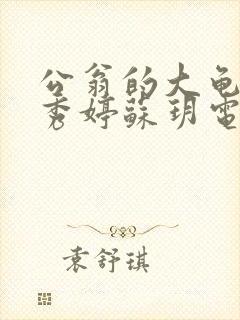 公翁的大龟
秀婷蘇玥電
袁舒琪